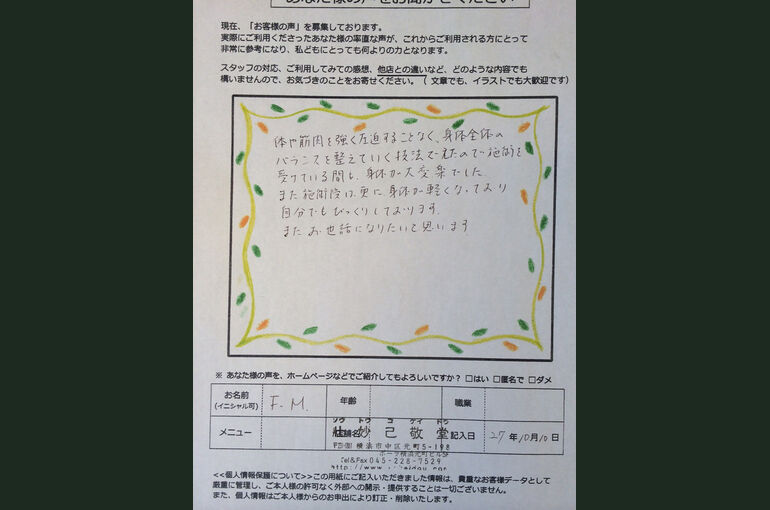 あなた様の声をお聞かせください
現在、「お客様の声」を募集しております。
実際にご利用くださったあなた様の率直な声が、これからご利用される方にとって
非常に参考になり、私どもにとっても何よりの力となります。
スタッフの対応、ご利用してみての感想、他店との違いなど、どのような内容でも
構いませんので、お気づきのことをお寄せください。（ 文章でも、イラストでも大歓迎です）
体や筋肉を強く圧迫することなく、身体全体の
バランスを整えていく技法でしたので施術を
受けている間も、身体が大変楽でした。
また施術後は更に身体が軽くなっており
自分でもびっくりしております。
またお世話になりたいと思います
※ あなた様の声を、ホームページなどでご紹介してもよろしいですか？ □はい □匿名で □ダメ
お名前 F.M. 年齢 職業
(イニシャル可)
ソウ トウ コ ケイ ドウ
メニュー 店舗名 妙己敬堂 記入日 27年10月10日
横浜市中区元町5-198
ポーラ横浜元町ビル5F
Tel&Fax 045-228-7529
<<個人情報保護について>>この用紙にご記入いただきました情報は、貴重なお客様データとして
厳重に管理し、ご本人様の許可なく外部への開示・提供することは一切ございません。
また、個人情報はご本人様からのお申出により訂正・削除いたします。